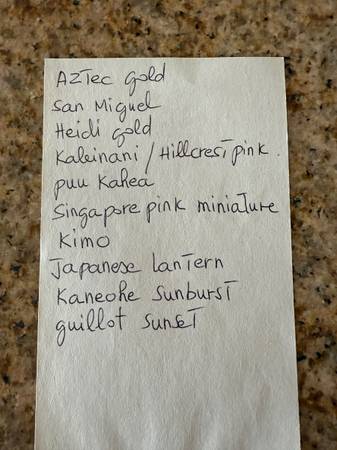 Aztec gold
San Miguel
Heidi gold
Kaleinani / Hillcrest pink.
puu Kahea
Singapore pink miniature
Kimo
Japanese Lantern
Kaneohe Sunburst
guillot sunset